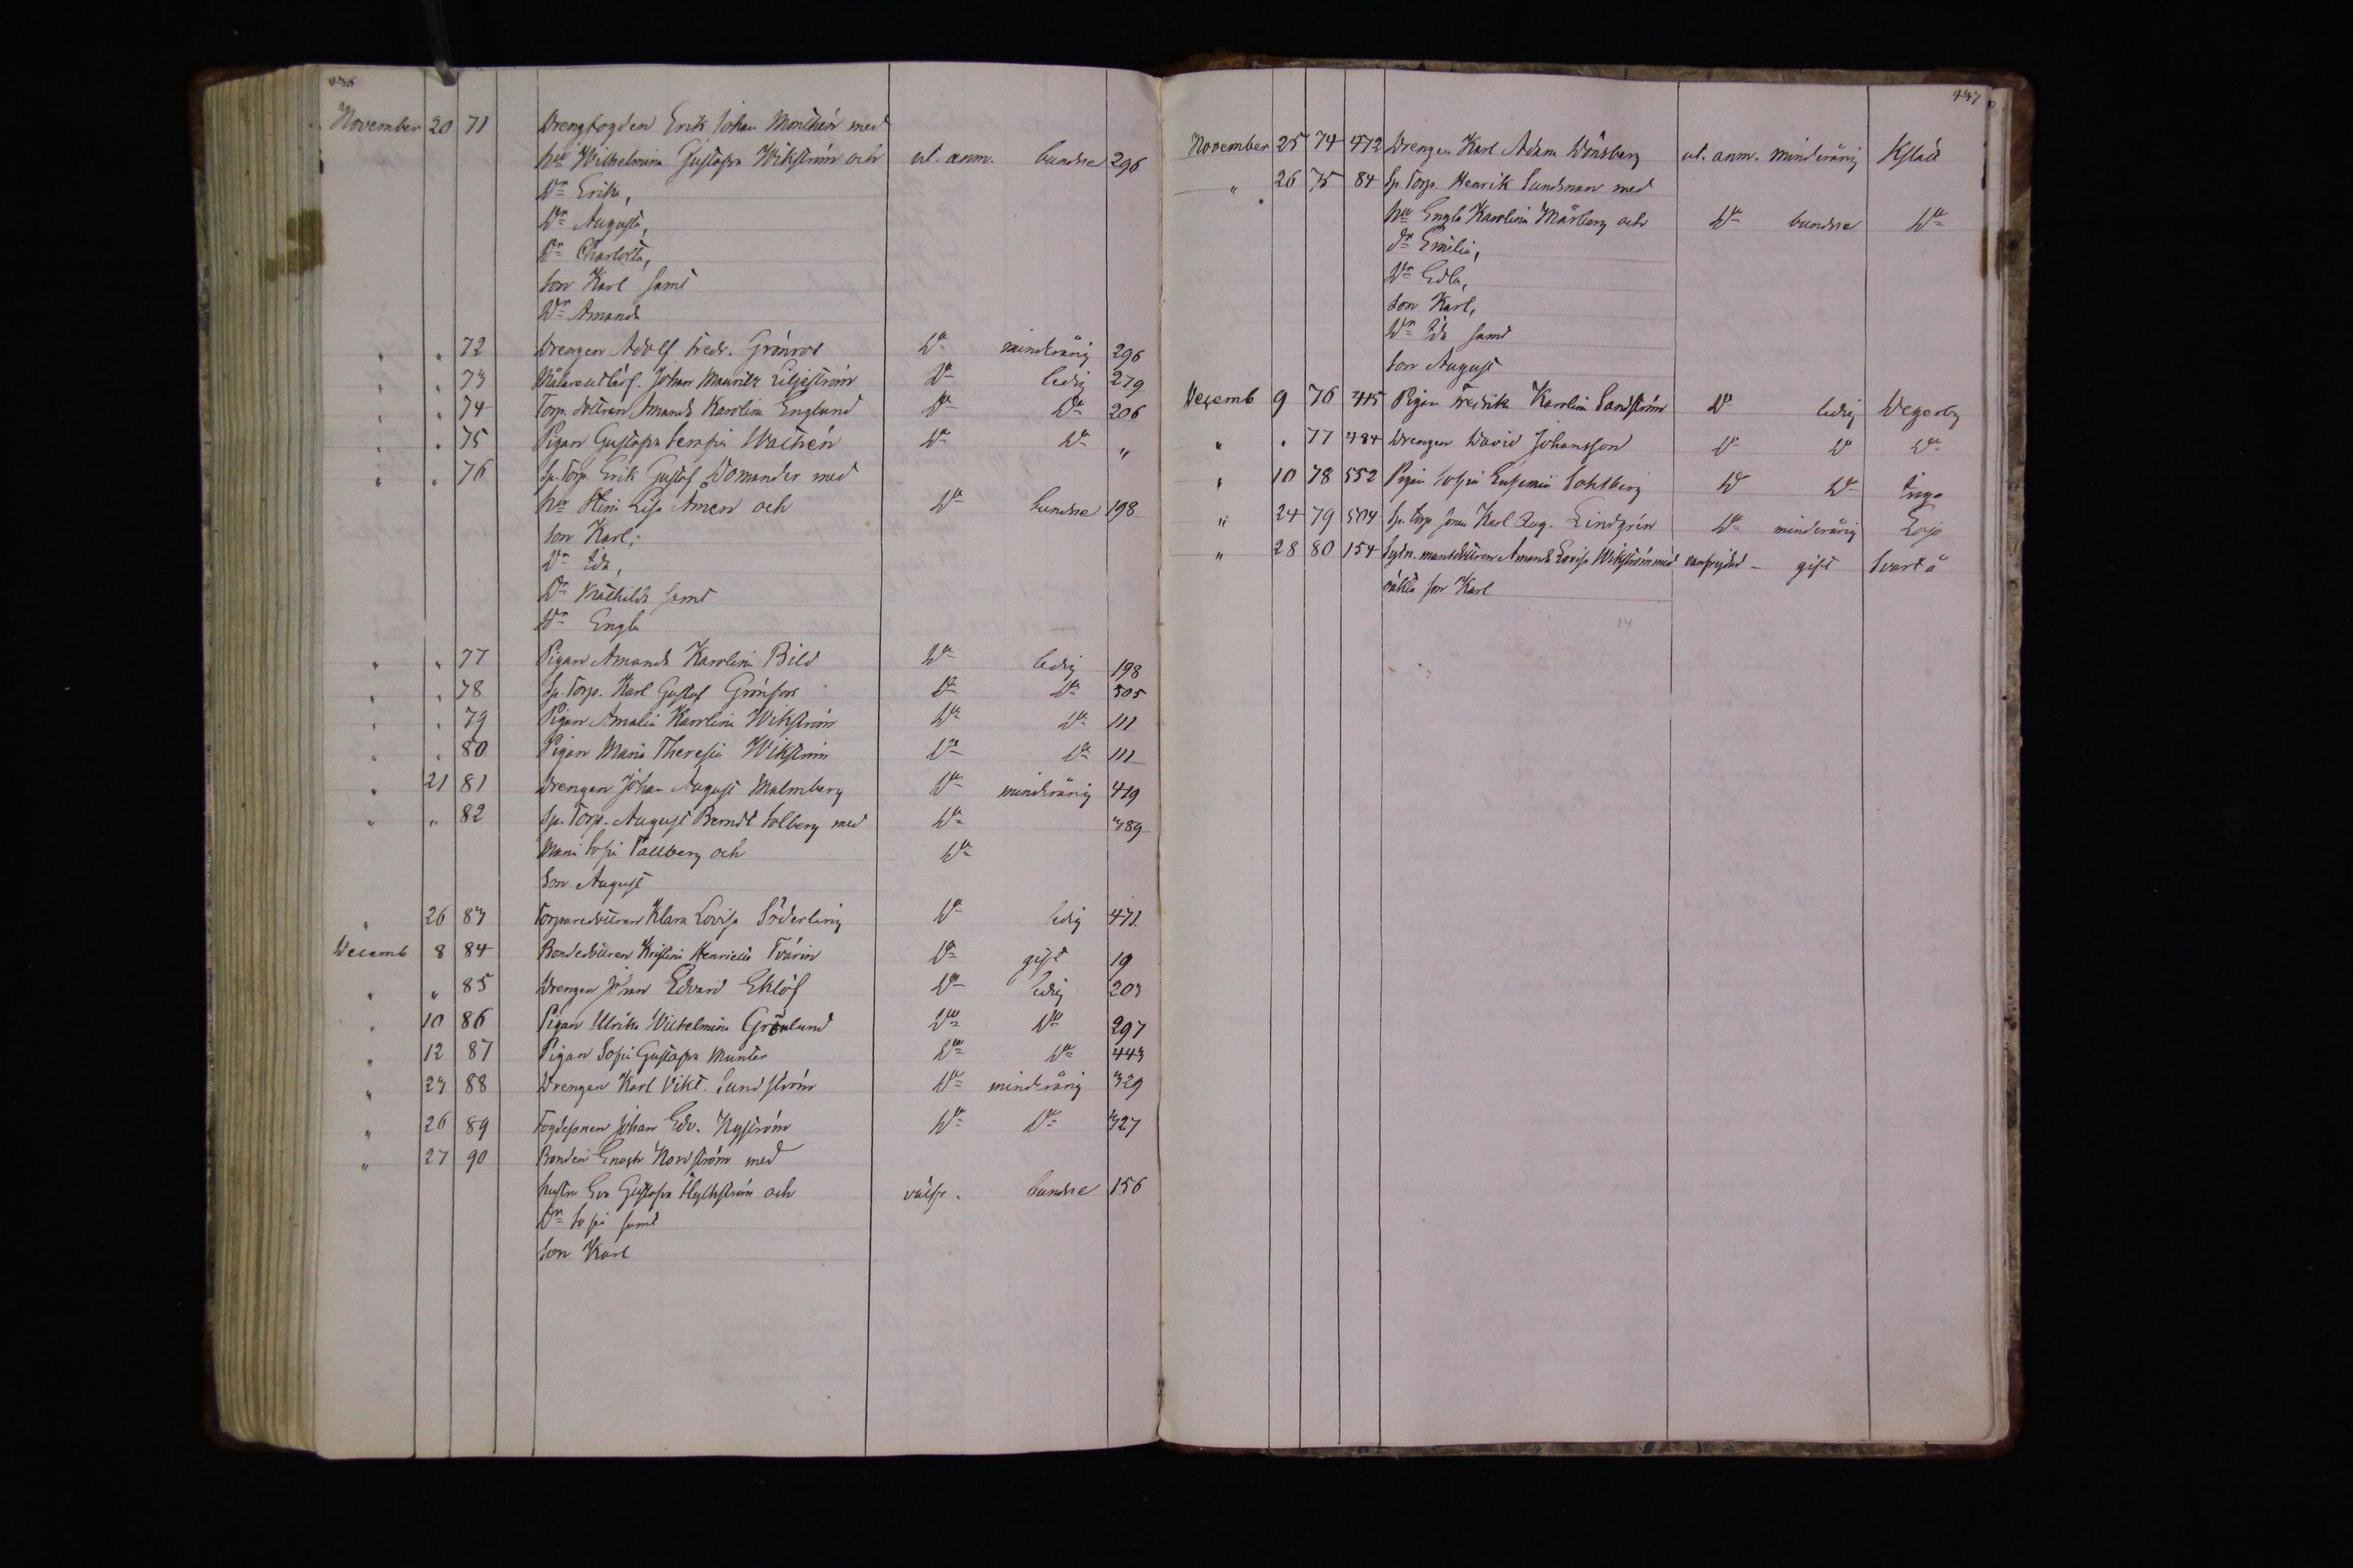 436
November 20 71 Drengfogden Erik Johan Monthén med
hu Wilhelmina Gustafva Wikström och ut. anm. bundne 296
Dr Erika,
Dr Augusta,
Dr Charlotta,
son Karl samt
Dr Amanda
" " 72 Drengen Adolf Fredr. Grönroos Do minderårig 296
" " 73 Målareutlärl. Johan Mauritz Liljeström Do ledig 279
" " 74 Torp. dottren Amanda Karolina Englund Do Do 206
" " 75 Pigan Gustafva Serafia Walthén Do Do "
" " 76 Sp. Torp. Erik Gustaf Womander med
hu Stina Lisa Åmen och Do bundne 198
son Karl,
Dr Ida,
Dr Mathilda samt
Dr Engla
" " 77 Pigan Amanda Karolina Bild Do ledig 198
" " 78 Sp. Torp. Karl Gustaf Grönfors Do Do 505
" " 79 Pigan Amalia Karolina Wikström Do Do 111
" " 80 Pigan Maria Theresia Wikström Do Do 111
" 21 81 Drengen Johan August Malmberg Do minderårig 419
" " 82 Sp. Torp. August Berndt Solberg med Do 389
Maria Sofia Tallberg och Do
Son August
" 26 83 Torparedottren Klara Lovisa Söderling Do ledig 471.
Decemb 8 84 Bondedottren Kristina Henrietta Tvärin Do gift 19
" " 85 Drengen Johan Edvard Eklöf Do ledig 203
" 10 86 Pigan Ulrika Wilhelmina Grönlund Do Do 297
" 12 87 Pigan Sofia Gustafva Munter Do Do 443
" 23 88 Drengen Karl Vikt. Sundström Do minderårig 329
" 26 89 Fogdesonen Johan Edv. Nyström Do Do 327
" 27 90 Bonden Enoch Nordström med
hustru Eva Gustafva Flythström och välfr. bundne 156
Dr Sofia samt
son Karl
437
November 25 74 472 Drengen Karl Adam Dönsberg ut. anm. minderårig Kslätt
" 26 75 84 Sp. Torp. Henrik Sundman med
hu Engla Karolina Mårberg och Do bundne Do
Dr Emilia,
Dr Edla,
son Karl,
Dr Ida samt
son August
Decemb 9 76 415 Pigan Fredrika Karolina Sandström Do ledig Degerby
" " 77 484 Drengen David Johansson Do Do Do
" 10 78 552 Pigan Sofia Eufemia Sohlberg Do Do Inga
" 24 79 504 Sp. torp. sonen Karl Aug. Lindgrén Do minderårig Lojo
" 28 80 154 Sytn. mansdottren Amanda Lovisa Wikström med vanfrejdad - gift Svartå
oäkta son Karl
14